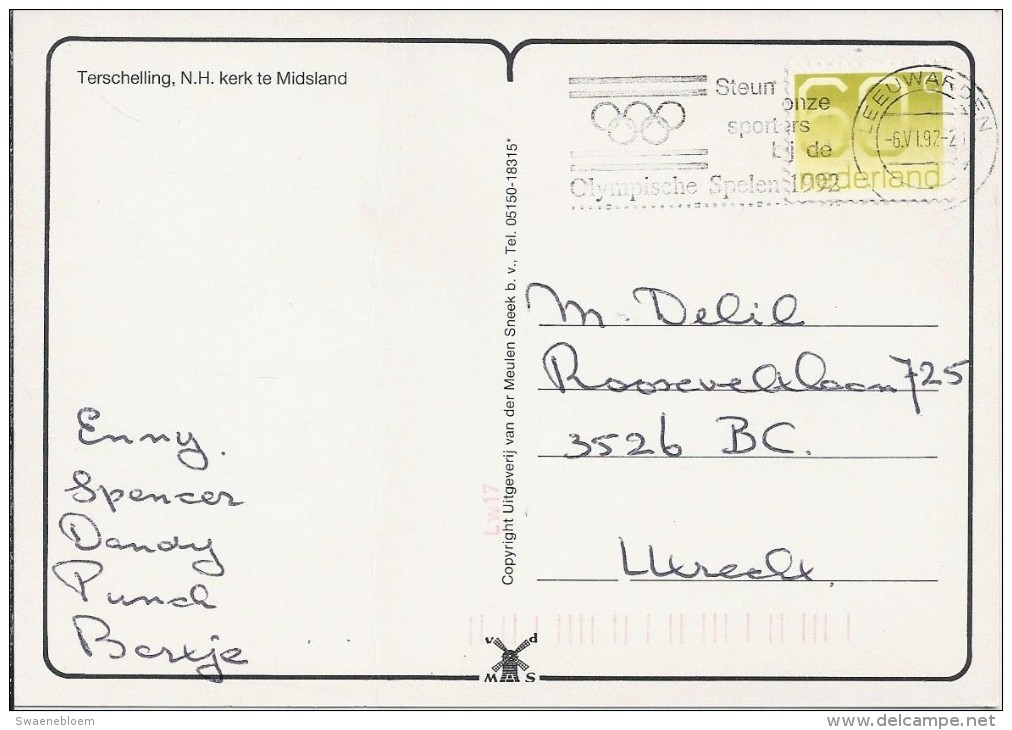 Terschelling, N.H. kerk te Midsland
Steun
onze
sporters
bij de
Olympische Spelen 1992
60c
nederland
LEEUWARDEN
-6.VI.92-2
Copyright Uitgeverij van der Meulen Sneek b. v., Tel. 05150-18315*
M. Delil
Rooseveltlaan 725
3526 BC.
Utrecht.
Enny.
Spencer
Dandy
Punch
Bartje
LW17
v d P
W S
Swaenebloem
www.delcampe.net